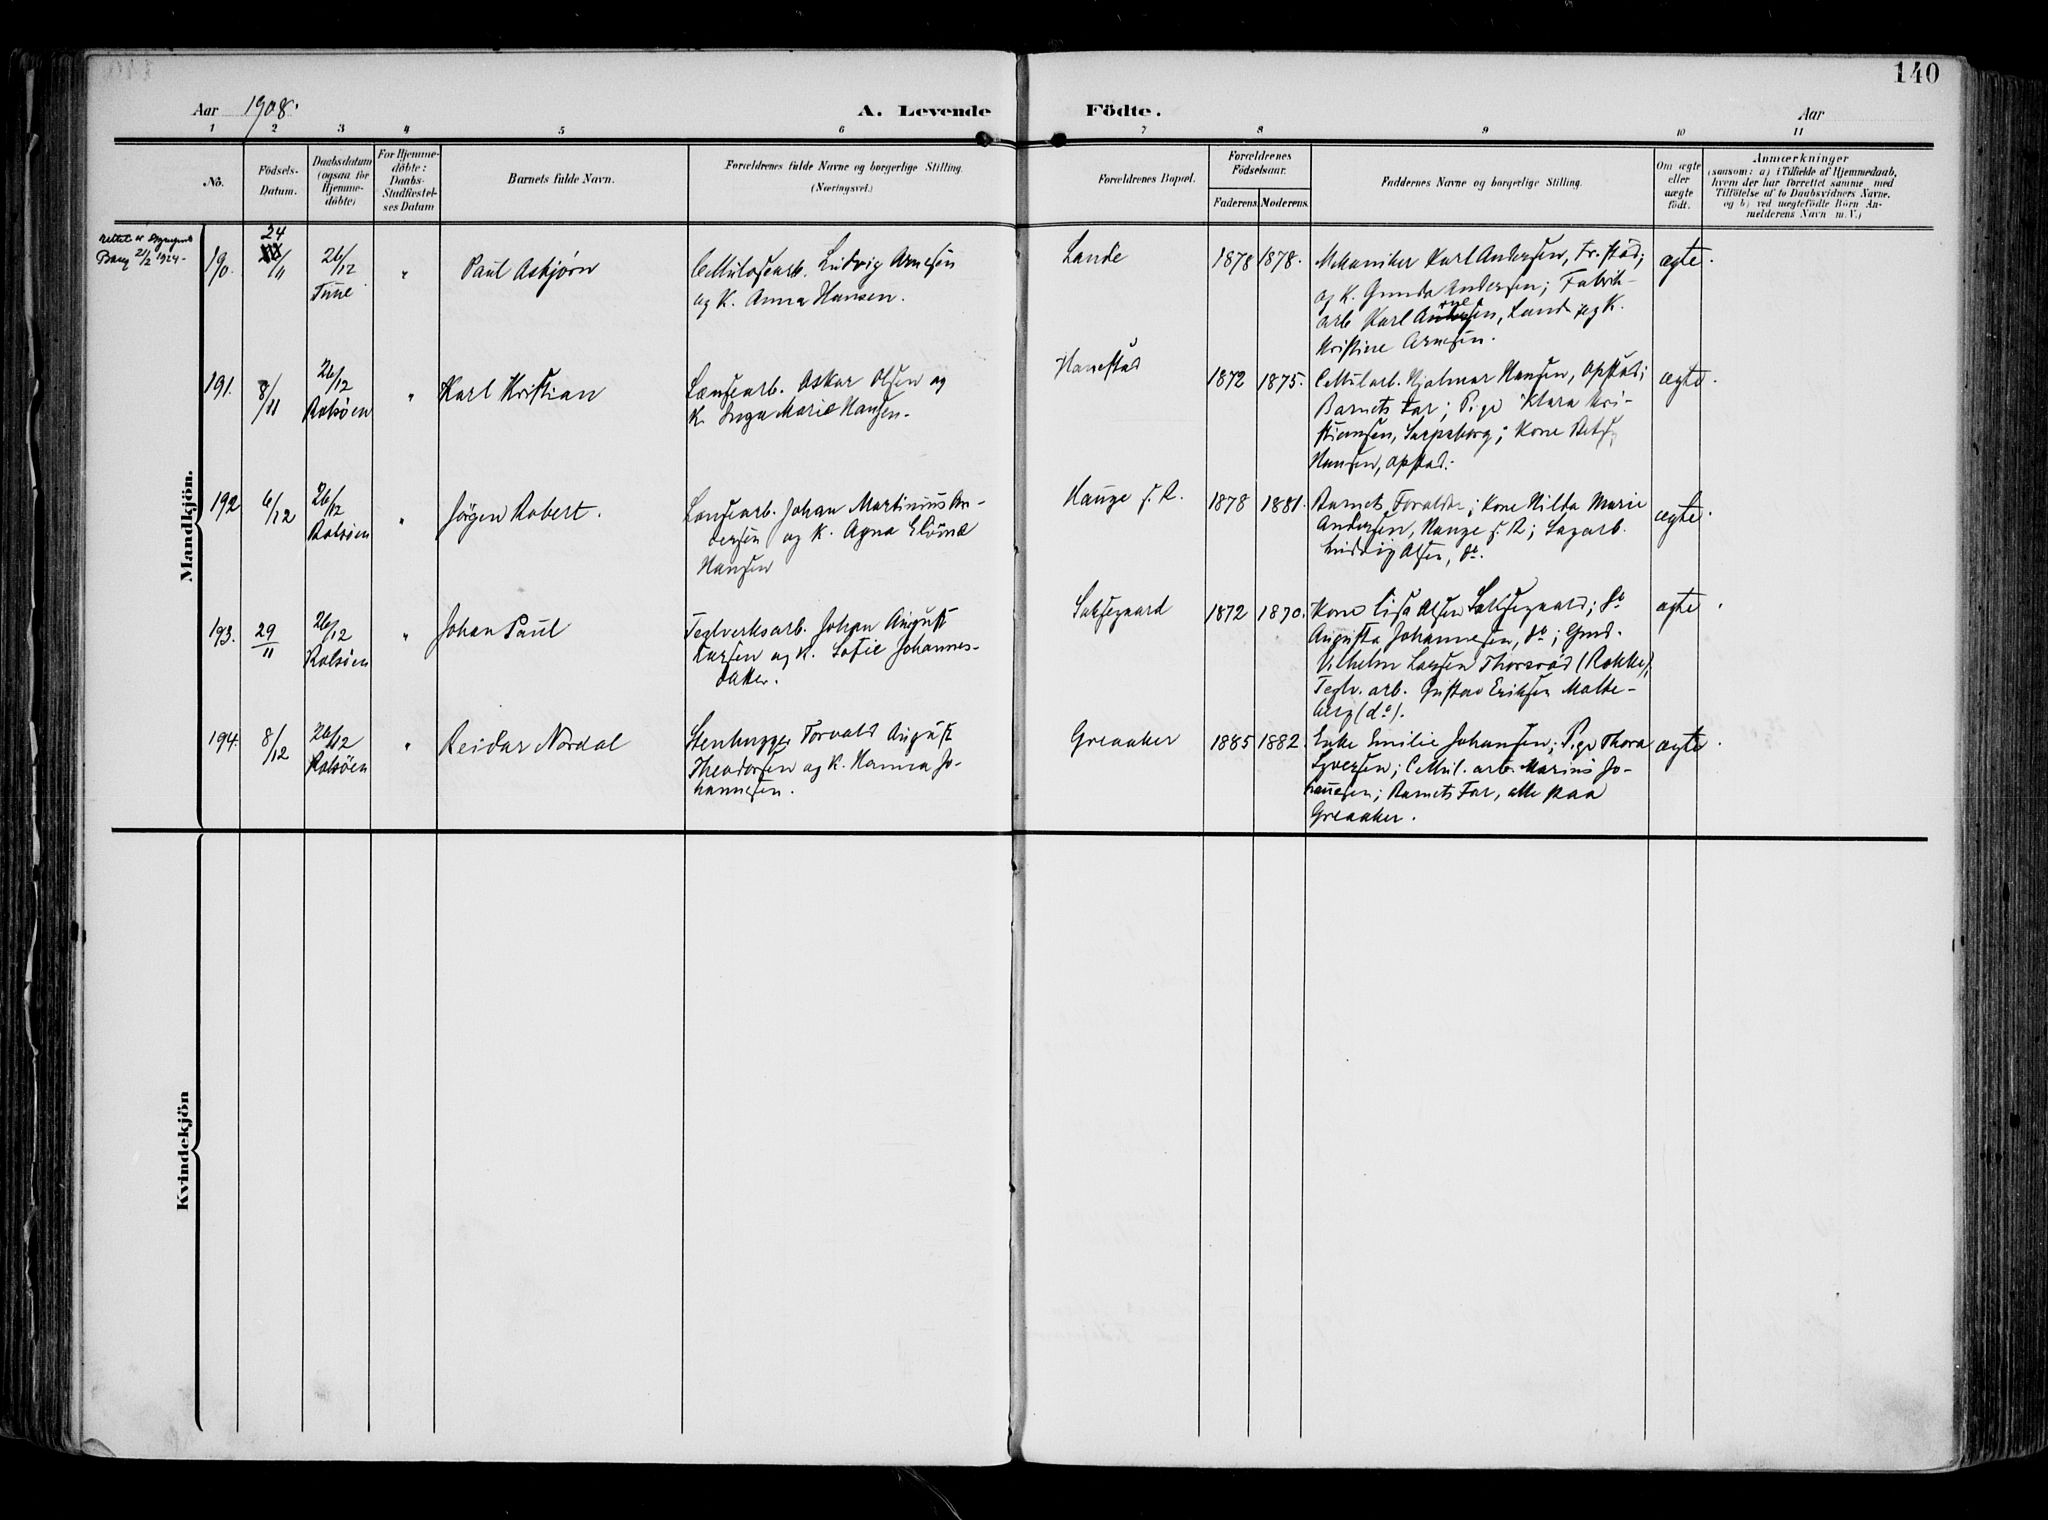 140
Aar 1908. A. Levende Födte. Aar
1 2 3 4 5 6 7 8 9 10 11
No. Födsels-Datum. Daabsdatum (ogsaa for Hjemme-döbte) For Hjemme-döbte: Daabs-Stadfæstel-ses Datum Barnets fulde Navn. Forældrenes fulde Navne og borgerlige Stilling. (Næringsvei.) Forældrenes Bopæl. Forældrenes Födselsaar. Faderens Moderens. Faddernes Navne og borgerlige Stilling. Om ægte eller uægte födt. Anmærkninger (saasom: a) i Tilfælde af Hjemmedaab, hvem der har forrettet samme med Tilföielse af to Daabsvidners Navne, og b) ved uægtefödte Börn An-melderens Navn m. V.)
Mandkjön.
rettet
Barg 21/2 1924-
190. 24/11 26/12 Tune " Paul Asbjørn
Cellulosearb. Ludvig Arnesen
og K. Anna Hansen.
Lande 1878 1878.
Mekaniker Karl Andersen, Fr.stad;
og K. Gunda Andersen; Fabrik-
arb Karl Arnesen, Lande og K.
Kristine Arnesen.
ægte.
191. 8/11 26/12 Rolsöen " Karl Kristian
Lænsearb. Oskar Olsen og
K. Inga Marie Hansen.
Hanestad 1872 1875.
Cellul.arb. Hjalmar Hansen, Opstad;
Barnets Far; Pige Klara Kri-
stiansen, Sarpsborg; Kone Betsy
Hansen, Opstad.
ægte.
192 6/12 26/12 Rolsöen " Jørgen Robert.
Lænsearb. Johan Martinius An-
dersen og K. Agna
Hansen
Hauge f. R. 1878 1881.
Barnets Forældre; Kone Hilda Marie
Andersen, Hauge f. R; Sagarb.
Ludvig Olsen, do.
ægte.
193. 29/11 26/12 Rolsöen " Johan Paul
Teglverksarb. Johan August
Larsen og K. Sofie Johannes-
datter.
Saksegaard 1872 1870.
Kone Lisa Olsen Saksegaard; do
Augusta Johannesen, do; Gmd.
Vilhelm Larsen Thorsrød (Rokke);
Teglv. arb. Gustav Eriksen Malte-
berg (do).
ægte.
194. 8/12 26/12 Rolsöen " Reidar Nordal
Stenhugger Torvald August
Theodorsen og K. Hanna Jo-
hannesen.
Greaaker 1885 1882.
Enke Emilie Johansen; Pige Thora
Syversen; Cellul. arb. Marius Jo-
hannesen; Barnets Far, alle paa
Greaaker.
ægte.
Kvindekjön